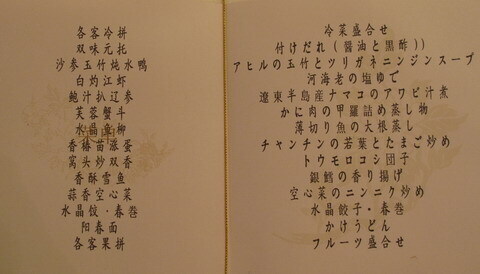 各客冷拼
双味元托
沙参玉竹炖水鸭
白灼江虾
鲍汁扒辽参
芙蓉蟹斗
水晶鱼柳
香椿苗涨蛋
窝头炒双香
香酥雪鱼
蒜香空心菜
水晶饺·春卷
阳春面
各客果拼
冷菜盛合せ
付けだれ(醤油と黒酢))
アヒルの玉竹とツリガネニンジンスープ
河海老の塩ゆで
遼東半島産ナマコのアワビ汁煮
かに肉の甲羅詰め蒸し物
薄切り魚の大根蒸し
チャンチンの若葉とたまご炒め
トウモロコシ団子
銀鱈の香り揚げ
空心菜のニンニク炒め
水晶餃子·春巻
かけうどん
フルーツ盛合せ